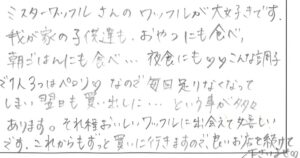 ミスターワッフルさんのワッフルが大好きです。
我が家の子供達も、おやつにも食べ、
朝ごはんにも食べ…夜食にも♡♡こんな調子
で1人3つはペロリ♡♡なので毎回足りなくなって
しまい翌日も買い出しに…という事が多々
あります。それ程おいしいワッフルに出会えて幸せ
です。これからもずっと買いに行きますので、お店を続けて
下さいませ♡♡